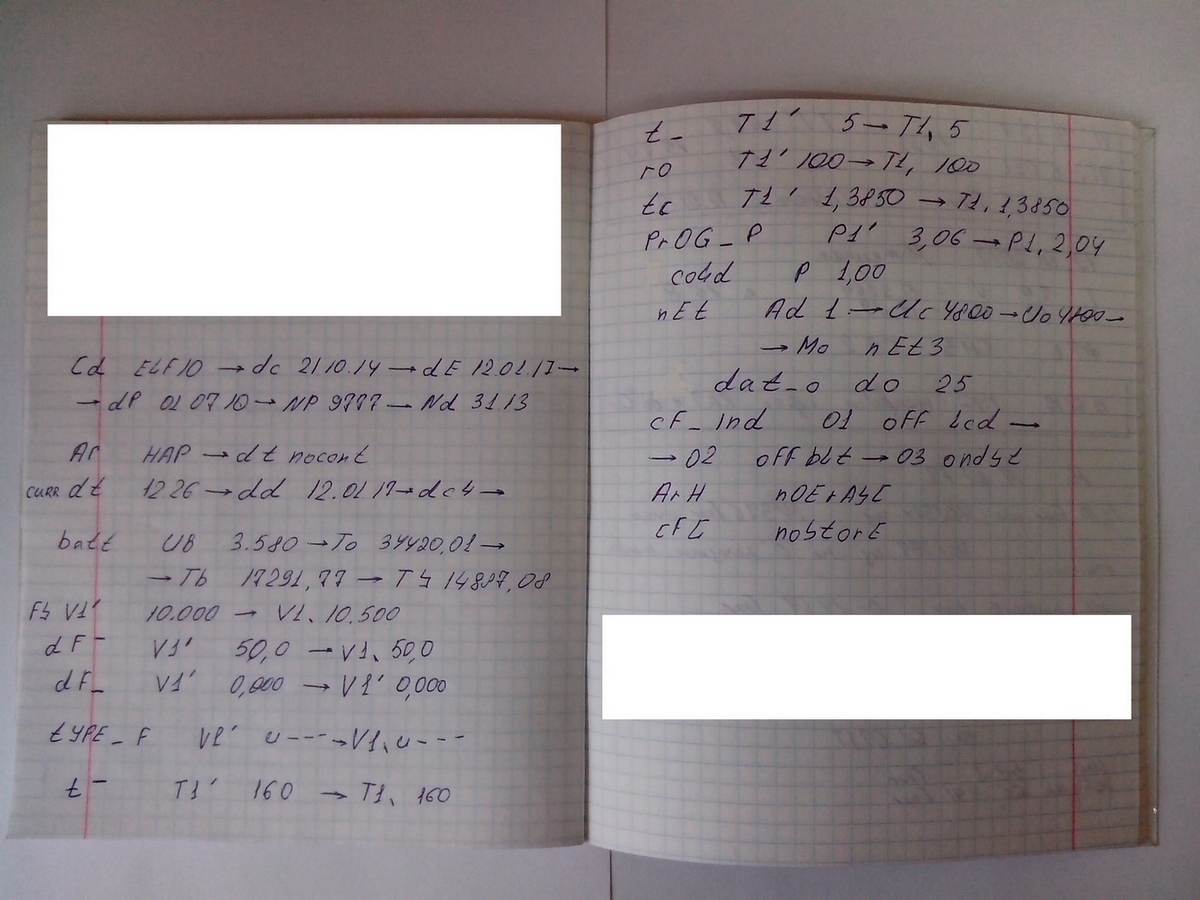 Cd ELF10 → dc 21.10.14 → dE 12.01.17 →
→ dP 01 07 10 → NP 9777 → Nd 31.13
Ar HAP → dt nocont
curr dt 12 26 → dd 12.01.17 → dc 4 →
batt UB 3.580 → To 34420,01 →
→ Tb 17291,77 → T 14887,08
V1' 10.000 → V1, 10.500
dF¯ V1' 50,0 → V1, 50,0
dF_ V1' 0,000 → V1' 0,000
tYPE_F V1' u--- → V1, u---
t¯ T1' 160 → T1, 160
t_ T1' 5 → T1, 5
r0 T1' 100 → T1, 100
tc T1' 1,3850 → T1, 1,3850
PrOG_P P1' 3,06 → P1, 2,04
co4d P 1,00
nEt Ad 1 → Uc 4800 → Uo 4800 →
→ Mo nEt3
dat_o do 25
cF_Ind 01 oFF Lcd →
→ 02 oFF bLt → 03 ondSt
ArH nOErASE
cFC noStorE